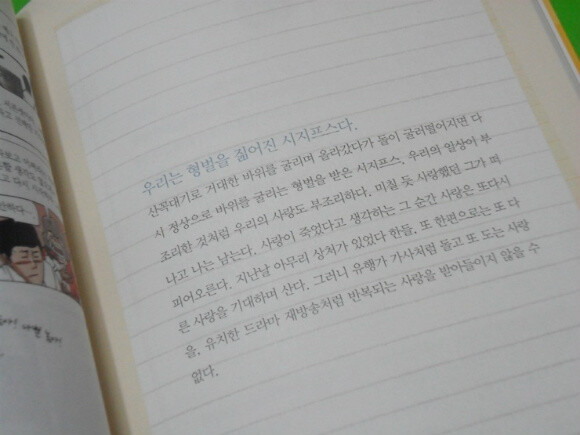 우리는 형벌을 짊어진 시지프스다.
산꼭대기로 거대한 바위를 굴리며 올라갔다가 들이 굴러떨어지면 다
시 정상으로 바위를 굴리는 형벌을 받은 시지프스, 우리의 일상이 부
조리한 것처럼 우리의 사랑도 부조리하다. 미칠 듯 사랑했던 그가 떠
나고 나는 남는다. 사랑이 죽었다고 생각하는 그 순간 사랑은 또다시
피어오른다. 지난날 아무리 상처가 있었다 한들, 또 한편으로는 또 다
른 사랑을 기대하며 산다. 그러니 유행가 가사처럼 돌고 또 도는 사랑
을, 유치한 드라마 재방송처럼 반복되는 사랑을 받아들이지 않을 수
없다.